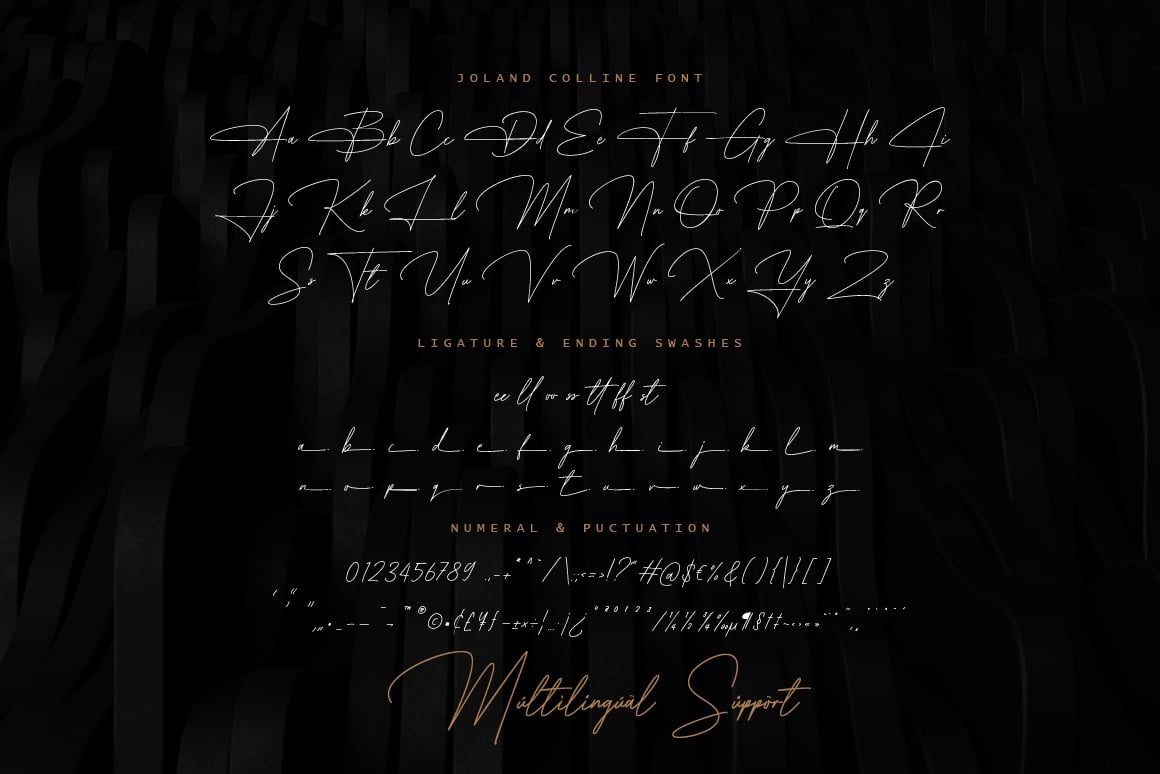 JOLAND COLLINE FONT
Aa Bb Cc Dd Ee Ff Gg Hh Ii
Jj Kk Ll Mm Nn Oo Pp Qq Rr
Ss Tt Uu Vv Ww Xx Yy Zz
LIGATURE & ENDING SWASHES
ee ll oo ss tt ff st
a b c d e f g h i j k l m
n o p q r s t u v w x y z
NUMERAL & PUCTUATION
0123456789 .,-+*^~/\:;<=>!?"#@$€%&(){|}[]
™®©•¢£¥ƒ–±×÷¦…·¡¿ºª0123/¼½¾‰µ¶§†‡
Múltilingúäl Süppört